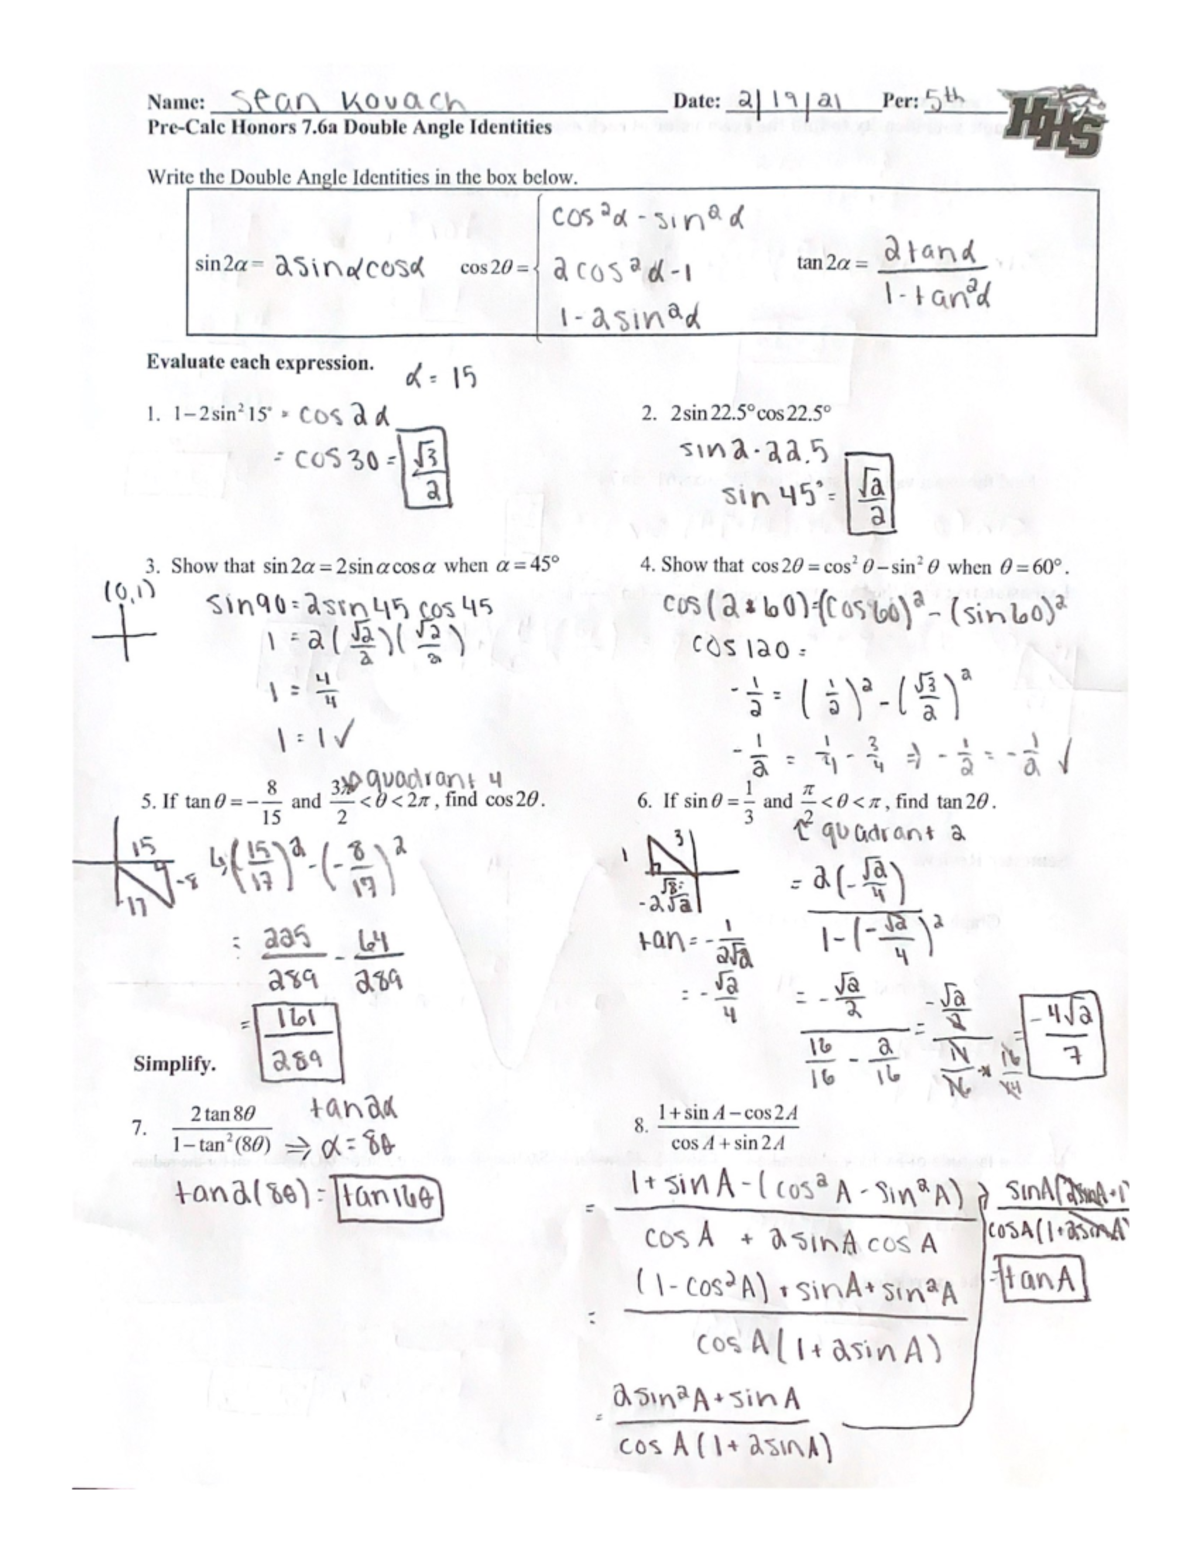 Name: Sean Kovach Date: 2/19/21 Per: 5th
HHS
Pre-Calc Honors 7.6a Double Angle Identities
Write the Double Angle Identities in the box below.
sin 2α = 2sinαcosα
cos 2θ = {
cos²α - sin²α
2cos²α - 1
1 - 2sin²α
tan 2α = 2tanα / 1 - tan²α
Evaluate each expression.
α = 15
1. 1 − 2 sin² 15° = cos 2α
= cos 30 = √3/2
2. 2 sin 22.5° cos 22.5°
sin 2 · 22.5
sin 45° = √2/2
3. Show that sin 2α = 2 sin α cos α when α = 45°
(0,1)
sin90 = 2sin 45 cos 45
1 = 2(√2/2)(√2/2)
1 = 4/4
1 = 1 ✓
4. Show that cos 2θ = cos² θ − sin² θ when θ = 60°.
cos(2*60) = (cos60)² - (sin60)²
cos 120 =
-1/2 = (1/2)² - (√3/2)²
-1/2 = 1/4 - 3/4 ⇒ -1/2 = -1/2 ✓
quadrant 4
5. If tan θ = −8/15 and 3π/2 < θ < 2π, find cos 2θ.
15
-8
17
↳ (15/17)² - (-8/17)²
= 225/289 - 64/289
= 161/289
6. If sin θ = 1/3 and π/2 < θ < π, find tan 2θ.
↑ quadrant 2
1
3
√8 =
-2√2
tan = -1/2√2
= -√2/4
= 2(-√2/4) / 1-(-√2/4)²
= -√2/2 / 16/16 - 2/16
= -√2/2 / 14/16 * 16/14 = -4√2/7
Simplify.
7. 2 tan 8θ / 1 − tan² (8θ)
tan2α
⇒ α = 8θ
tan2(8θ) = tan16θ
8. 1 + sin A − cos 2A / cos A + sin 2A
= 1 + sin A - (cos² A - sin² A) / cos A + 2sinA cos A
= (1 - cos²A) + sinA + sin²A / cos A(1 + 2sin A)
= 2sin²A + sin A / cos A(1 + 2sinA)
sinA(2sinA+1 / cosA(1+2sinA
= tan A